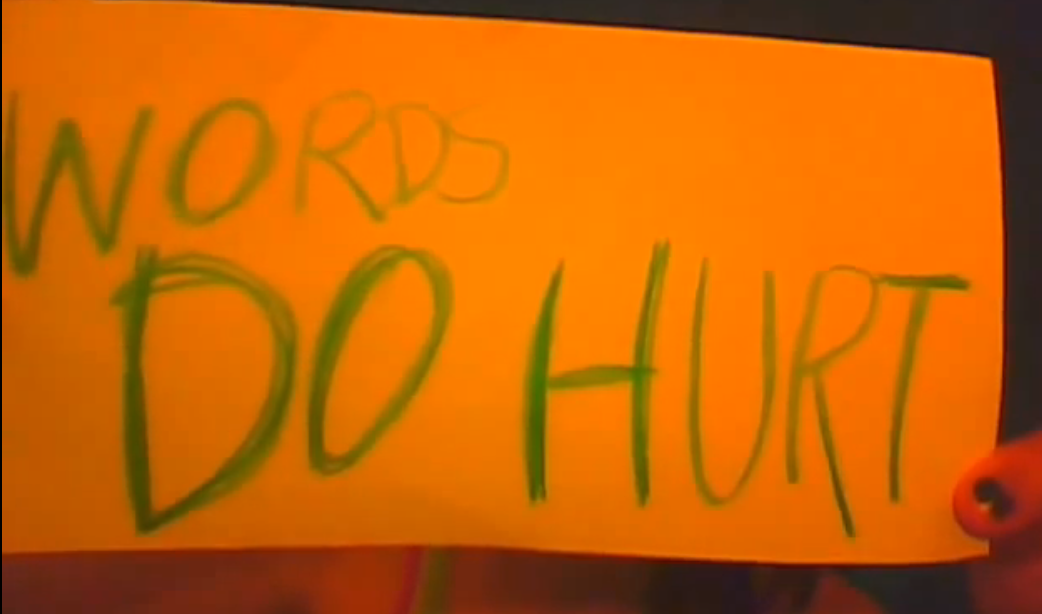 WORDS
DO HURT